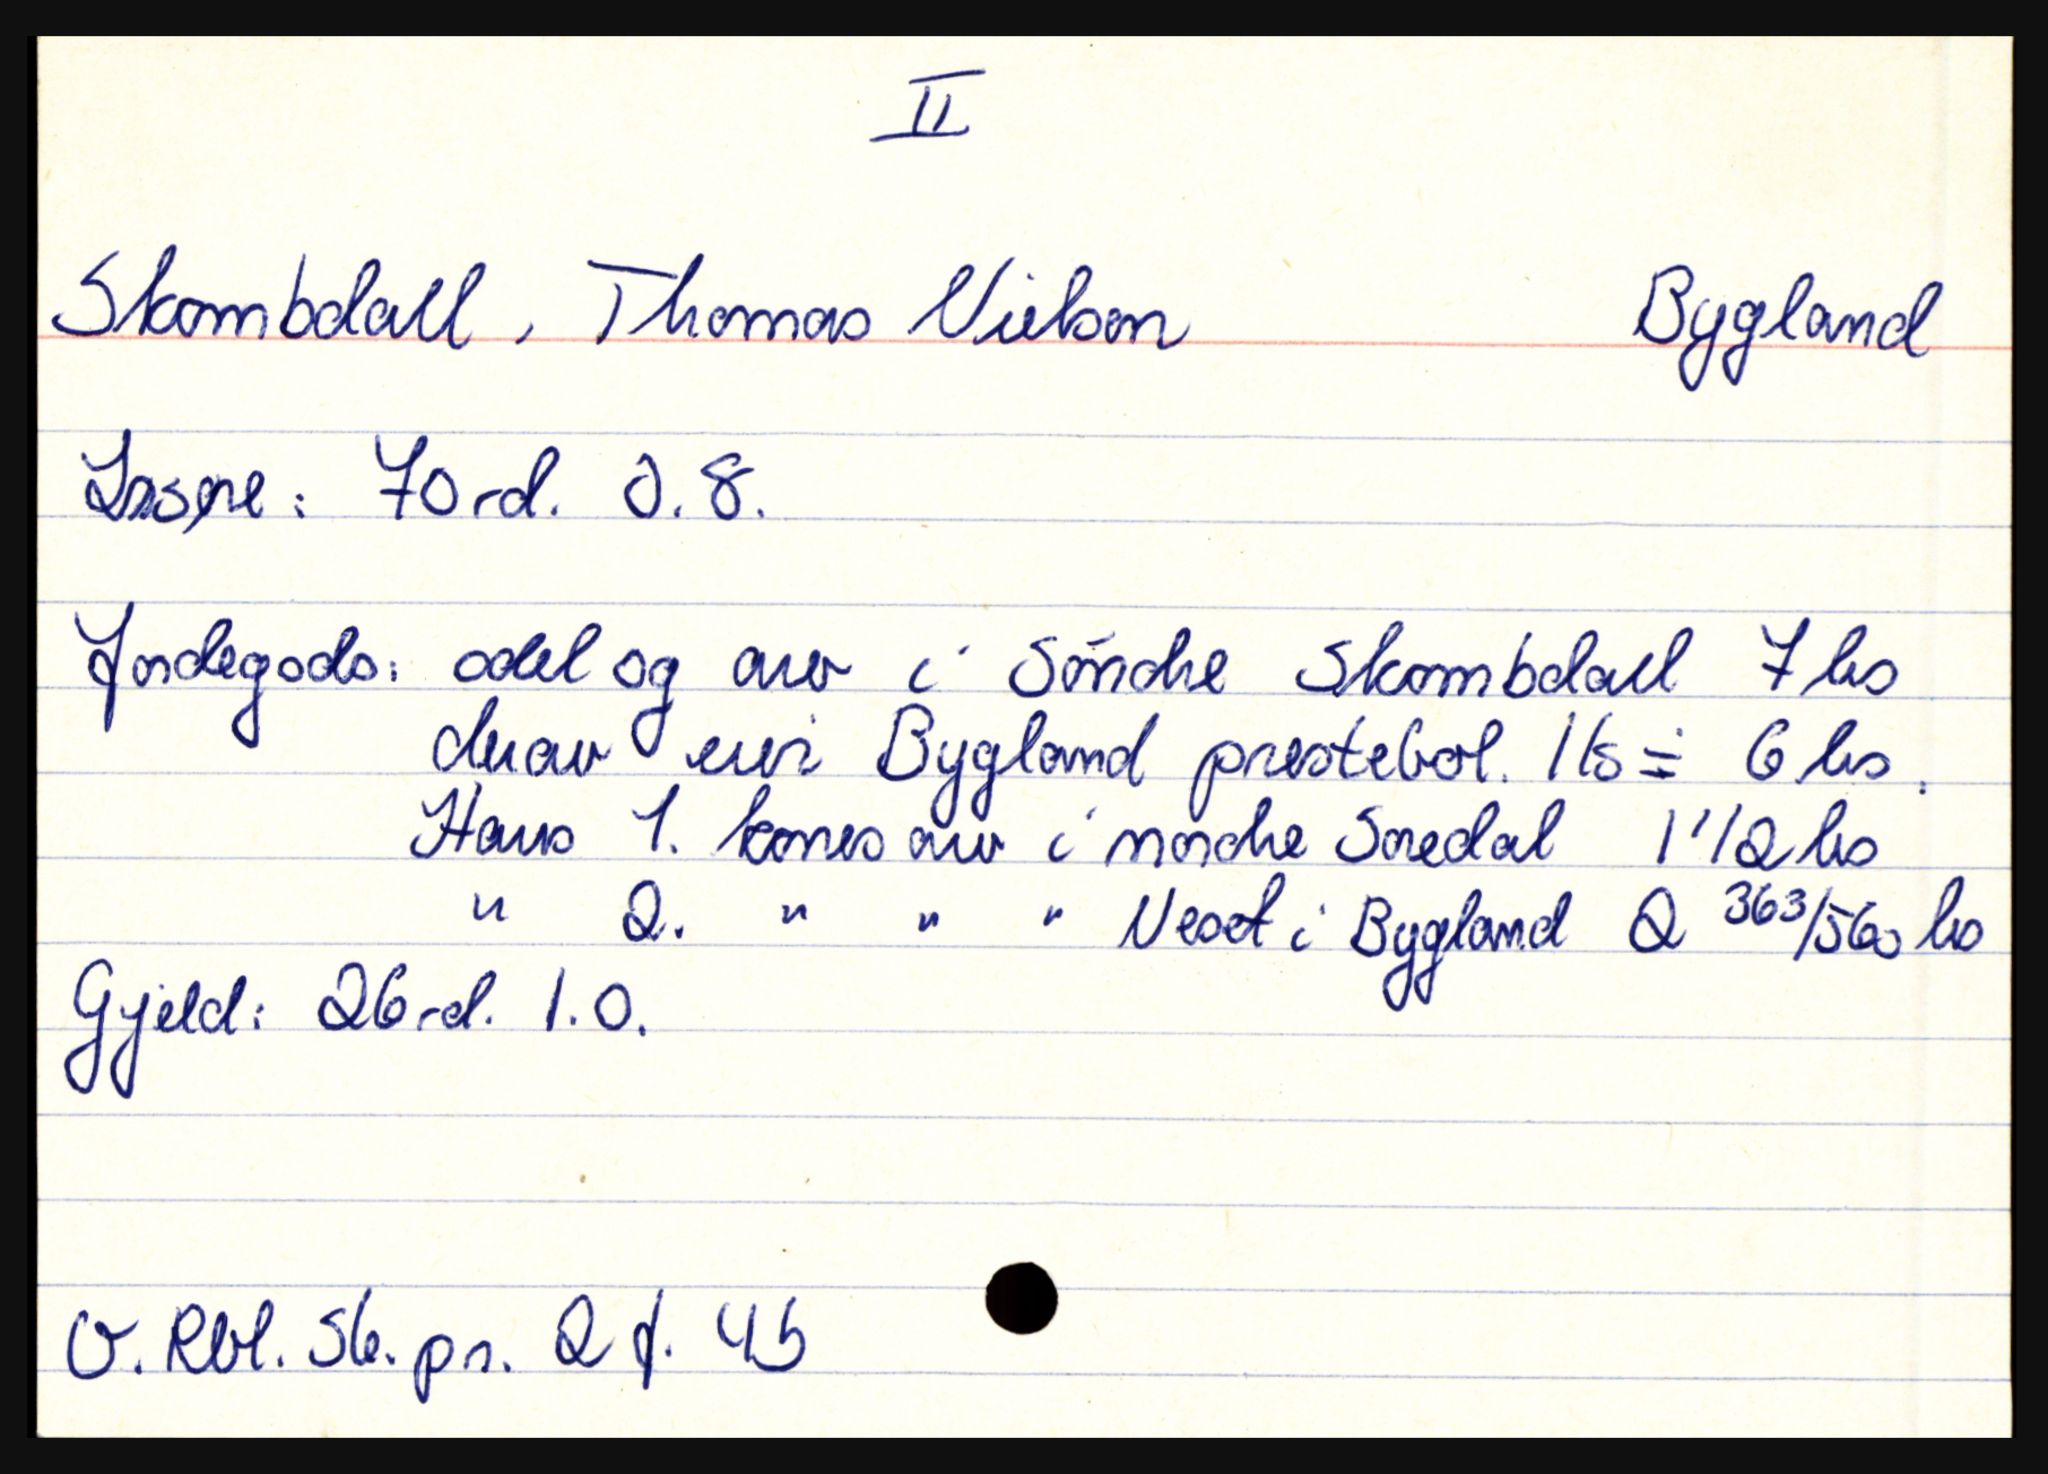 II
Skombdall, Thomas Nielson Bygland
Løsøre: 70 rd. 0.8.
Jordegods: odel og arv i Söndre Skombdall 7 hs
derav eier Bygland prestebol. 1 ts = 6 hs.
Hans 1. kones arv i nordre Soredal 1 1/2 hs
" 2. " " " Neset i Bygland 2 363/560 hs
Gjeld: 26 rd. 1.0.
V. Rbl. Sk. pr. 2 f. 4b